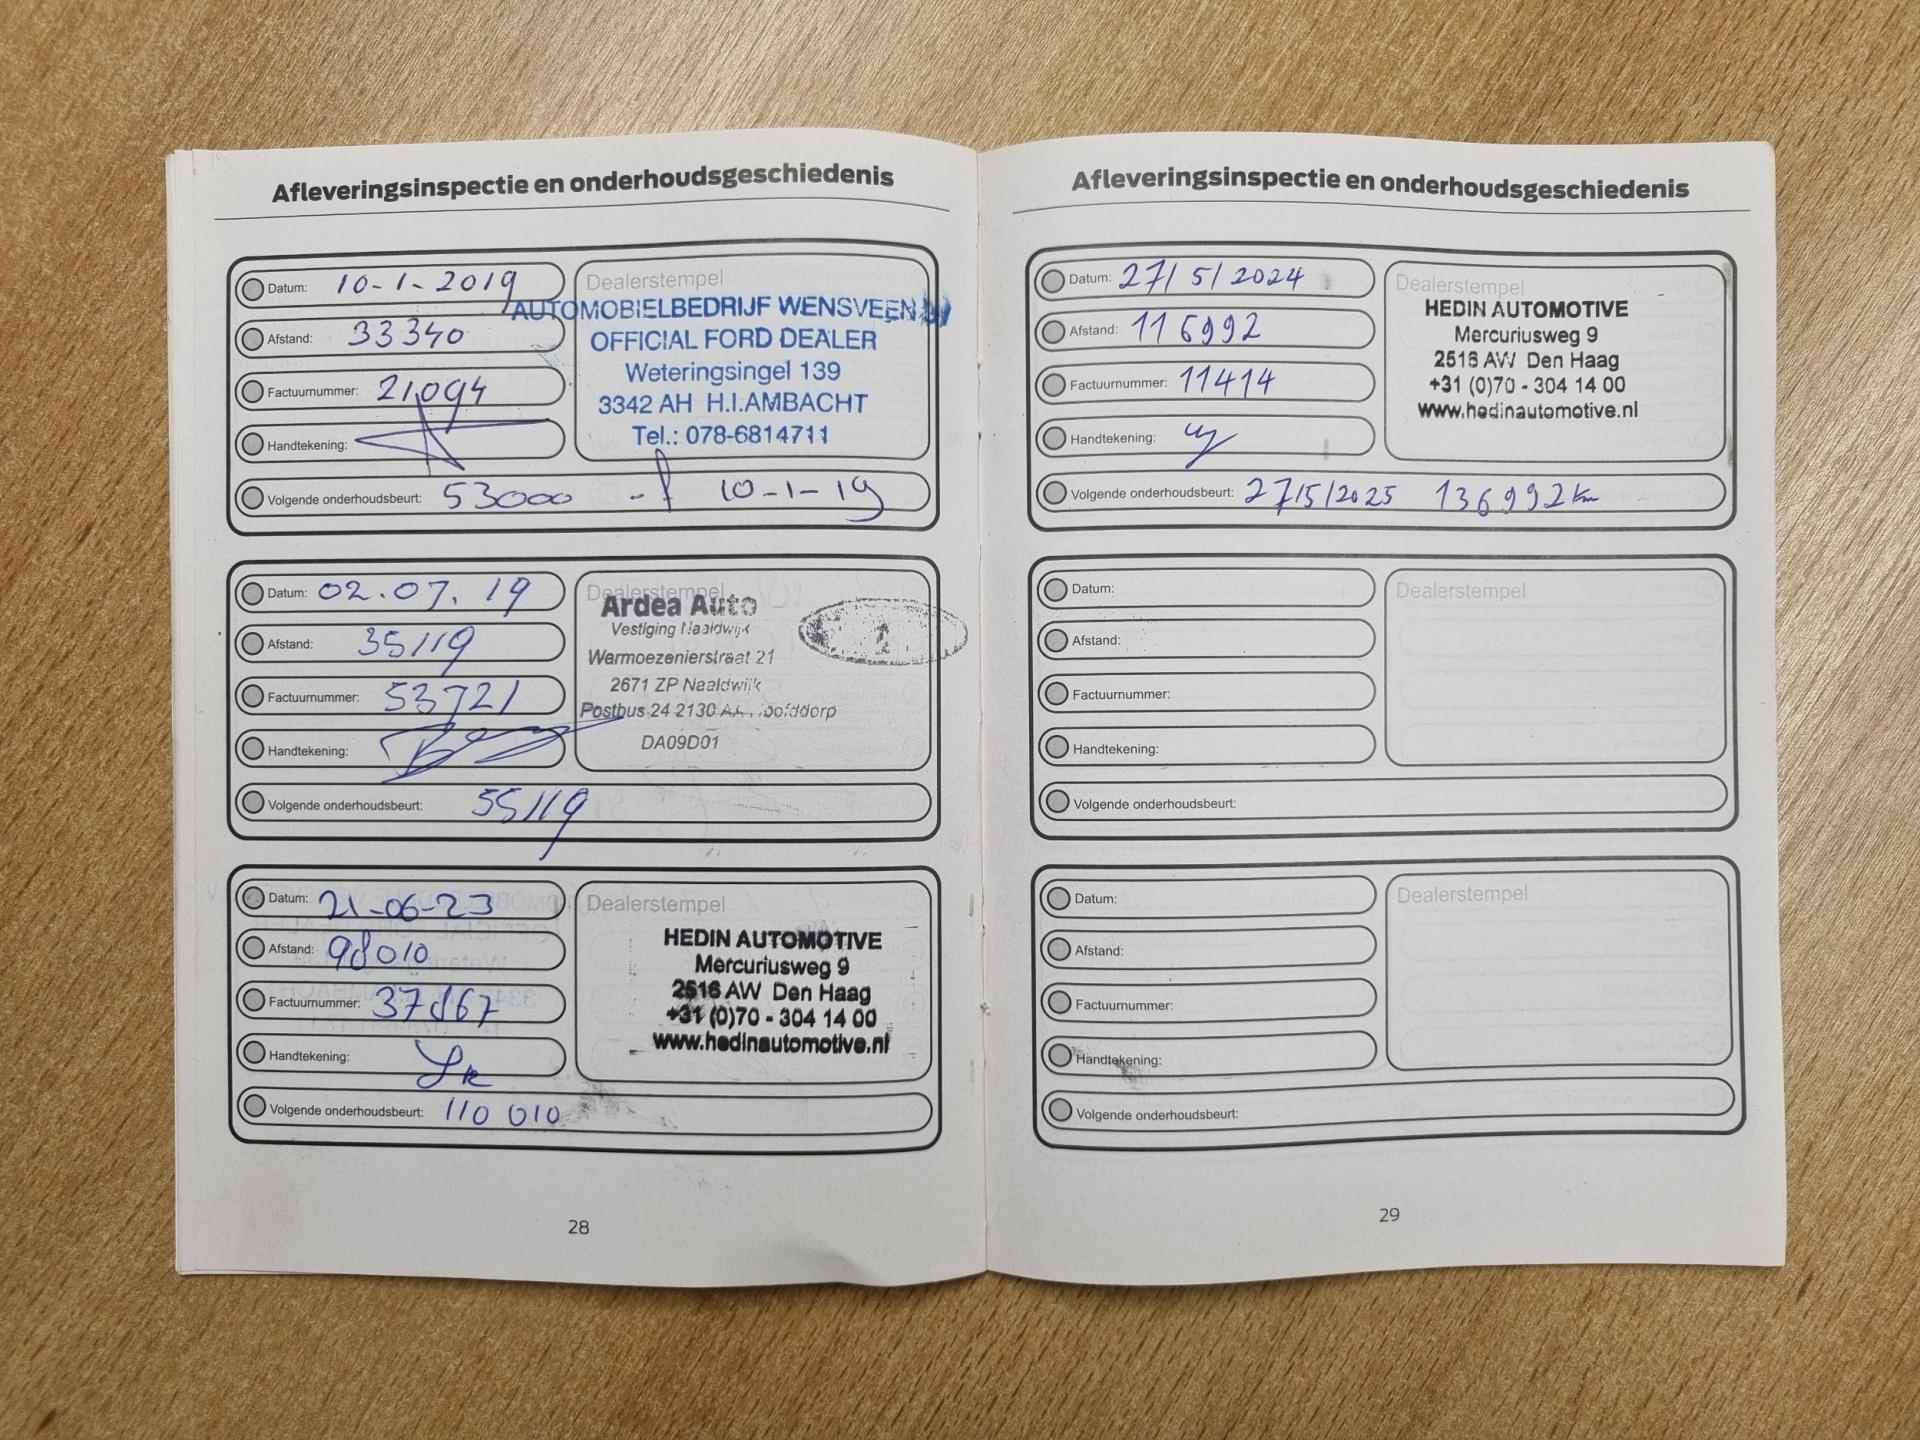 Afleveringsinspectie en onderhoudsgeschiedenis
Datum: 10-1-2019
Afstand: 33340
Factuurnummer: 21094
Handtekening:
Dealerstempel
AUTOMOBIELBEDRIJF WENSVEEN
OFFICIAL FORD DEALER
Weteringsingel 139
3342 AH H.I.AMBACHT
Tel.: 078-6814711
Volgende onderhoudsbeurt: 53000 10-1-19
Datum: 02.07.19
Afstand: 35119
Factuurnummer: 53721
Handtekening:
Dealerstempel
Ardea Auto
Vestiging Naaldwijk
Warmoezenierstraat 21
2671 ZP Naaldwijk
Postbus 24 2130
DA09D01
Volgende onderhoudsbeurt: 55119
Datum: 21-06-23
Afstand: 98010
Factuurnummer: 37867
Handtekening:
Dealerstempel
HEDIN AUTOMOTIVE
Mercuriusweg 9
2516 AW Den Haag
+31 (0)70 - 304 14 00
www.hedinautomotive.nl
Volgende onderhoudsbeurt: 110 010
28
Afleveringsinspectie en onderhoudsgeschiedenis
Datum: 27/5/2024
Afstand: 116992
Factuurnummer: 11414
Handtekening:
Dealerstempel
HEDIN AUTOMOTIVE
Mercuriusweg 9
2516 AW Den Haag
+31 (0)70 - 304 14 00
www.hedinautomotive.nl
Volgende onderhoudsbeurt: 27/5/2025 136992km
Datum:
Afstand:
Factuurnummer:
Handtekening:
Dealerstempel
Volgende onderhoudsbeurt:
Datum:
Afstand:
Factuurnummer:
Handtekening:
Dealerstempel
Volgende onderhoudsbeurt:
29